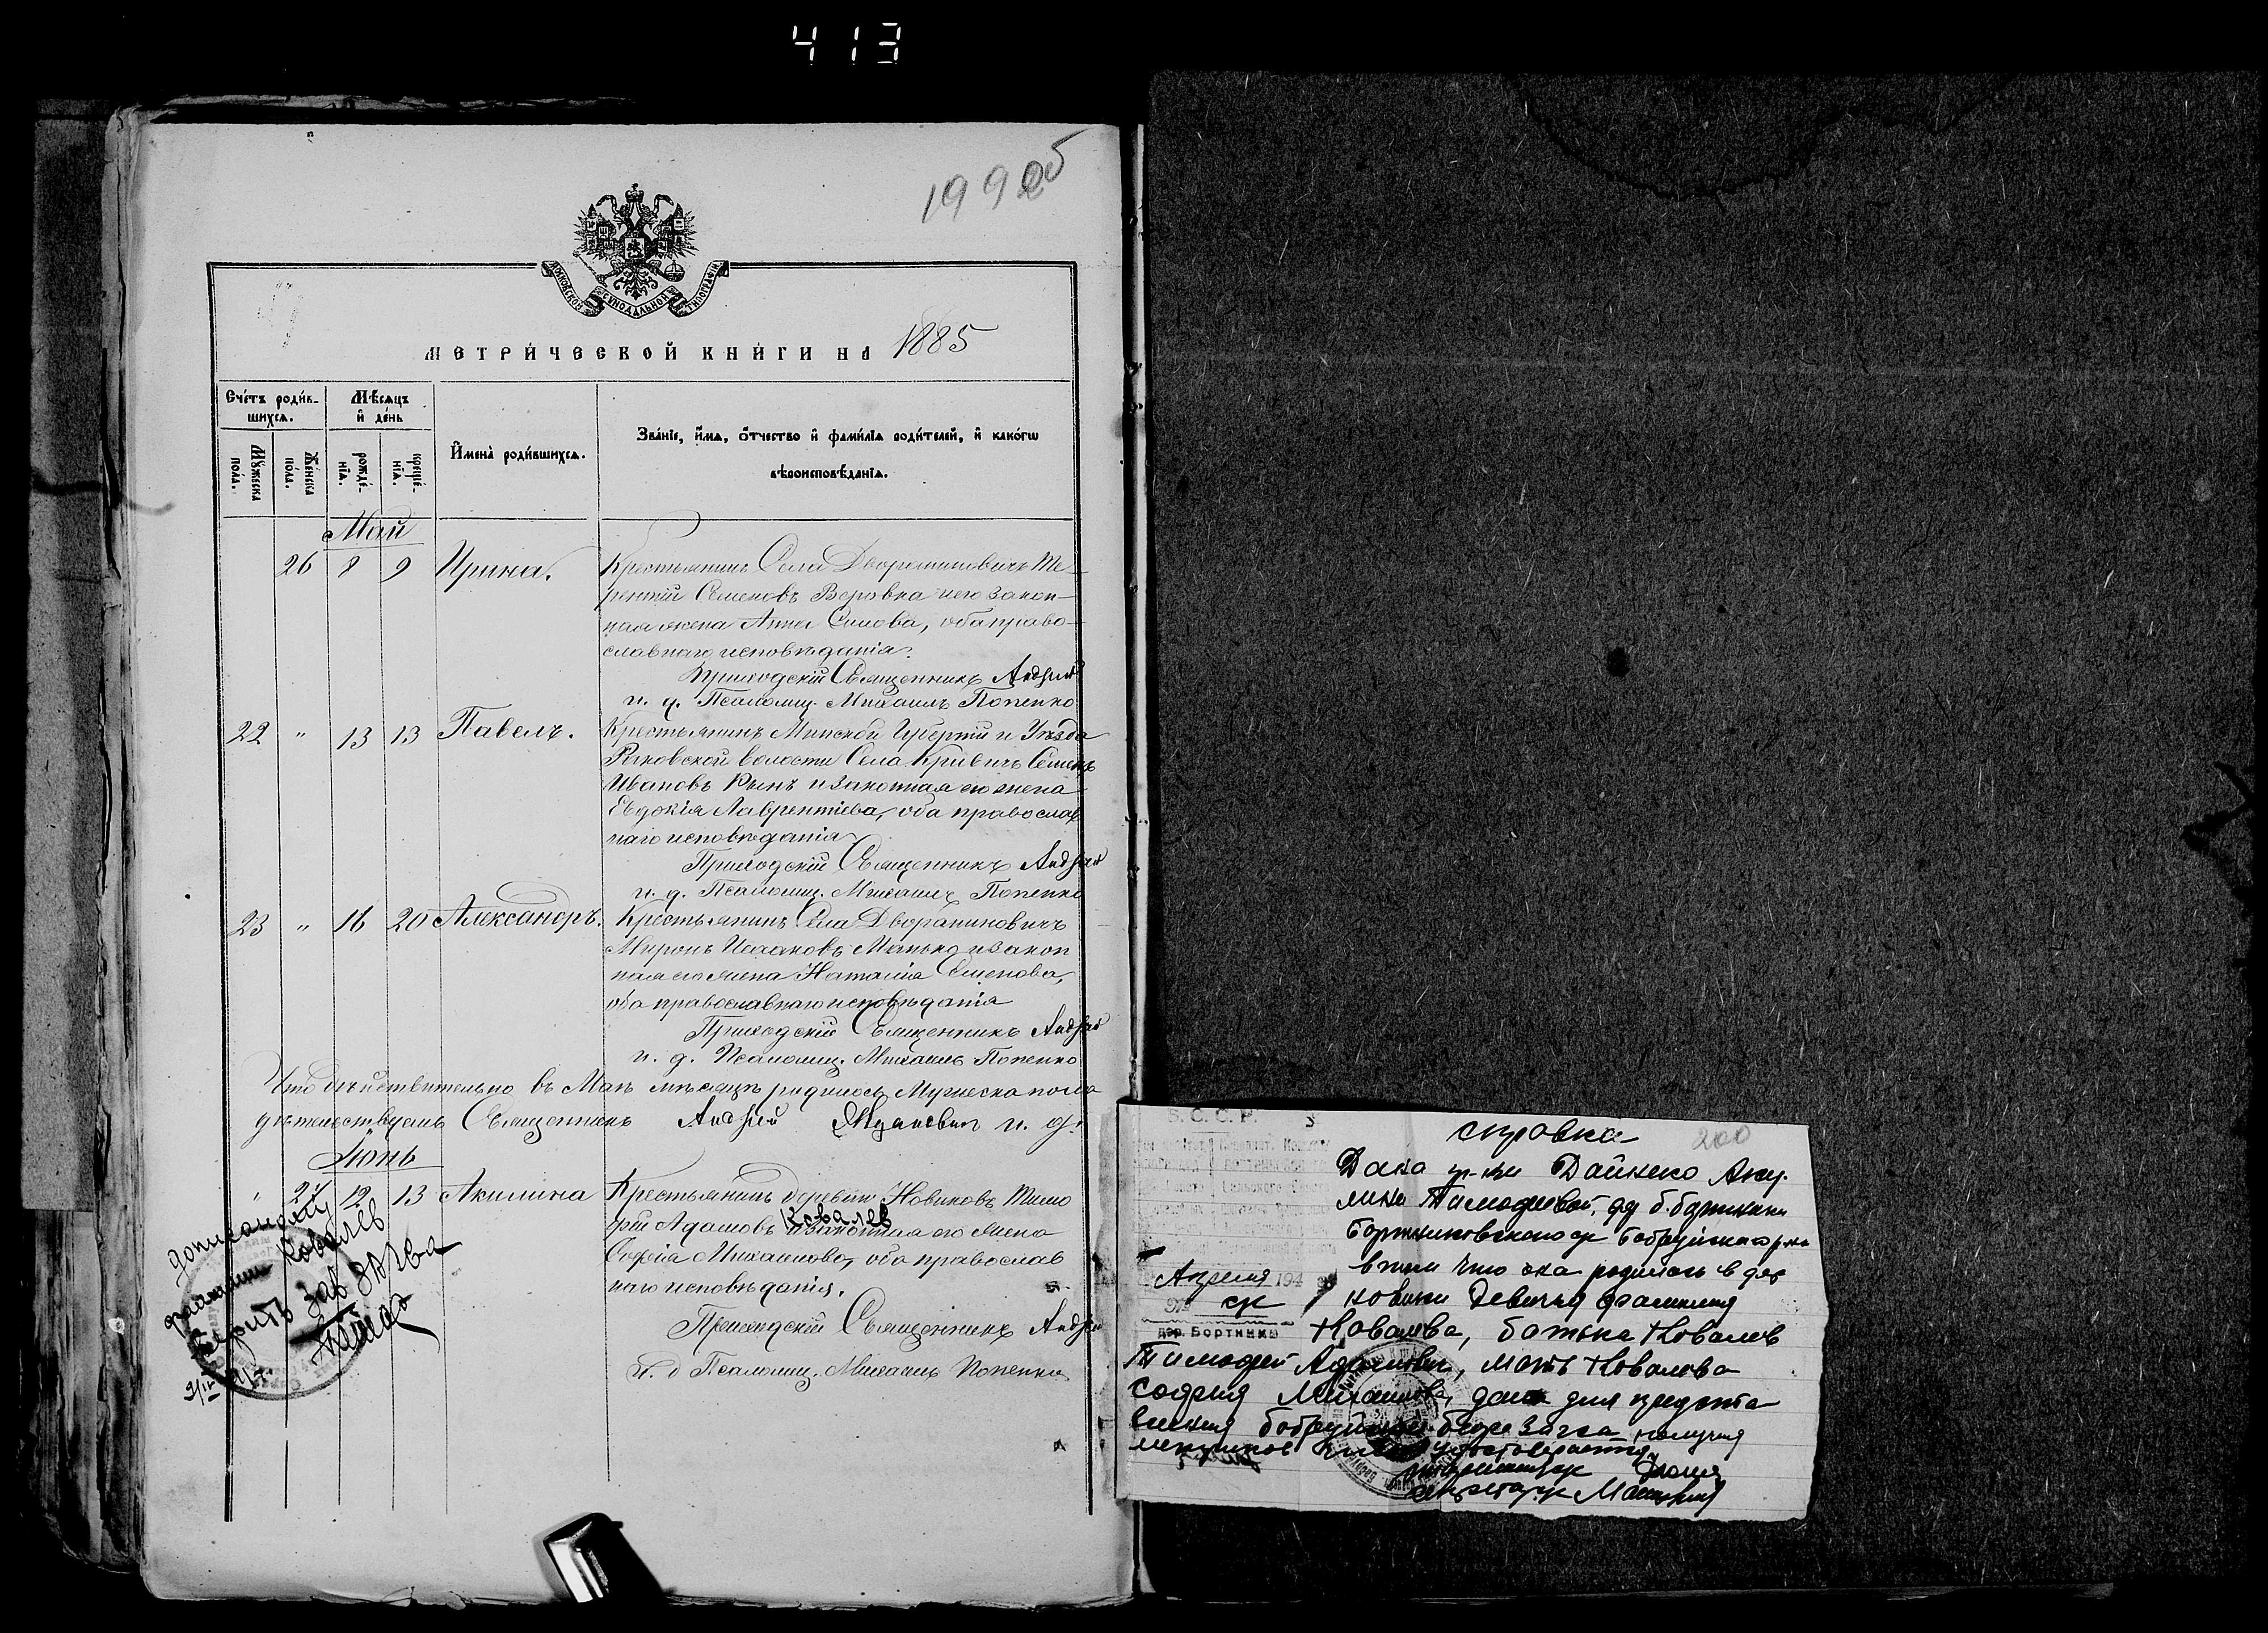 413
199 об
МОСКОВСКОЙ СУНОДАЛЬНОЙ ТИПОГРАФІИ
МЕТРИ́ЧЕСКОЙ КНИ́ГИ НА 1885
Сче́тъ роди́в-
шихсѧ.
Мѣ́сѧцъ
и҆ де́нь
Мꙋ́жеска
по́ла.
Же́нска
по́ла.
рожде́-
нїѧ.
креще́-
нїѧ.
И҆мена̀ роди́вшихсѧ.
Зва́нїе, и҆́мѧ, ѻ҆́тчество и҆ фами́лїѧ роди́телей, и҆ како́гѡ
вѣроисповѣ́данїѧ.
Май
26 8 9 Ирина. Крестьянинъ Села Дворениновичъ Те-
рентій Семеновъ Веровка и его закон-
ная жена Анна Симова, оба право-
славнаго исповѣданія.
Приходскій Священникъ Андрей
и. д. Псаломщ. Михаилъ Попенко
22 " 13 13 Павелъ. Крестьянинъ Минской Губерніи и Уѣзда
Раковской волости Села Кривичъ Семенъ
Ивановъ Рынъ и законная его жена
Евдокія Лаврентіева, оба православ
наго исповѣданія
Приходскій Священникъ Андрей
и. д. Псаломщ. Михаилъ Попенко
23 " 16 20 Александръ. Крестьянинъ Села Дворяниновичъ
Миронъ Исааковъ Манько и закон
ная его жена Наталія Семенова,
оба православнаго исповѣданія
Приходскій Священникъ Андрей
и. д. Псаломщ. Михаилъ Попенко
Что дѣйствительно въ Маѣ мѣсяцѣ родилось Мужеска пола
дѣтельствуемъ Священникъ Андрей и. д.
Іюнь
" 27 12 13 Акилина Крестьянинъ деревни Новиковъ Тимо
фей Адамовъ Ковалев и законная его жена
Софія Михаилова, оба православ
наго исповѣданія.
Приходскій Священникъ Андрей
И. д Псаломщ. Михаилъ Попенко
дописанному
фамилии Ковалев
верить зав ЗАГСа
S. C. C. P.
Апреля 194
№
дер. Бортники
справка 200
Дана гр-ке Дайнеко Аку-
лине Тимофеевой, дер б. бортники
Бортниковского с/с Бобруйского р-на
в том что она родилась в дер
новики Девичья фамилия
Ковалева, батька Ковалев
Тимофей Адамович, мать Ковалева
София Михайлова, дана для предста
вления бобруйское бюро Загса
удостоверяется
секретарь